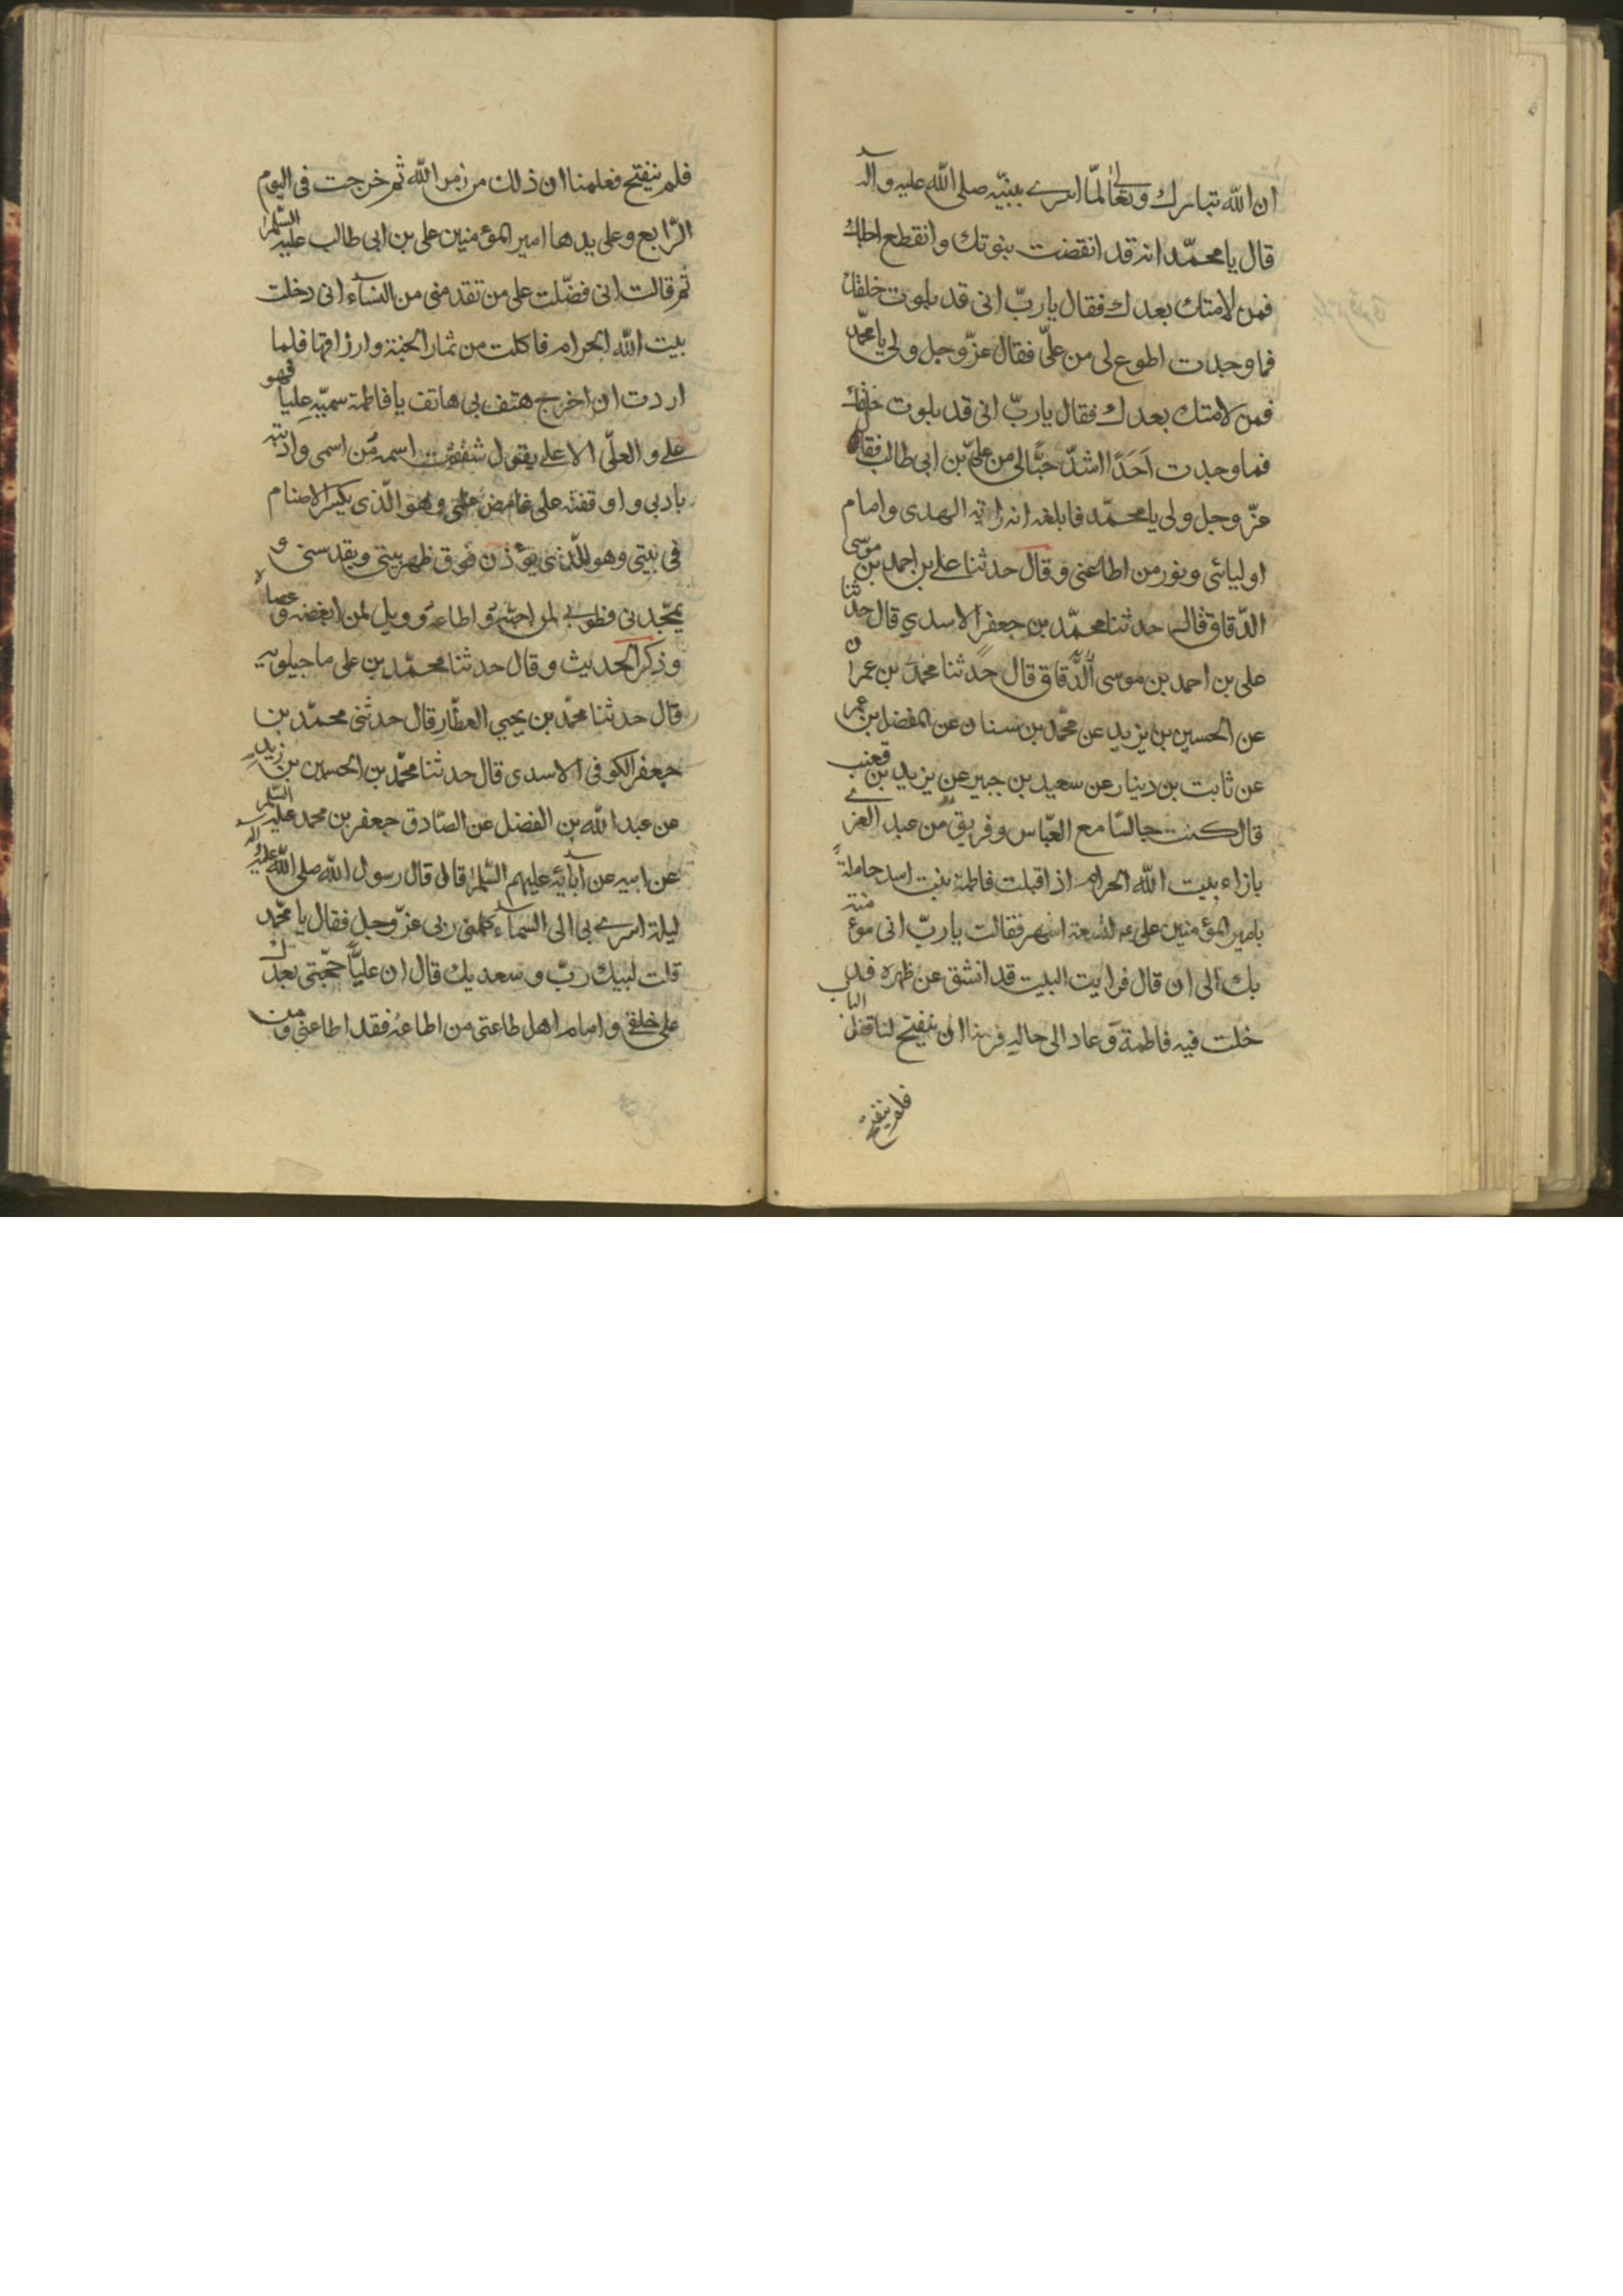 ان الله تبارك وتعالى لمّا اسرى بنبيّه صلى الله عليه وآله
قال يا محمّد انه قد انقضت نبوتك وانقطع اجلك
فمن لامتك بعدك فقال يا ربّ انى قد بلوت خلقك
فما وجدت اطوع لى من علىّ فقال عزّ وجل ولى يا محمّد
فمن لامتك بعدك فقال يا ربّ انى قد بلوت خلقك
فما وجدت اَحَدًا اشدّ حبًّا لى من علىّ بن ابى طالب فقال
عزّ وجل ولى يا محمّد فابلغه انه راية الهدى وامام
اوليائى ونور من اطاعنى وقال حدثنا على بن احمد بن موسى
الدّقاق قال حدثنا محمّد بن جعفر الاسدي قال حدثنا
على بن احمد بن موسى الدّقاق قال حدثنا محمّد بن عمران
عن الحسين بن يزيد عن محمّد بن سنان عن المفضل بن عمر
عن ثابت بن دينار عن سعيد بن جبير عن يزيد بن قعنب
قال كنت جالسًا مع العبّاس وفريق من عبد العزى
بازاء بيت الله الحرام اذ اقبلت فاطمة بنت اسد حاملةً
بامير المؤمنين على عه لتسعة اشهر فقالت يا ربّ انى مؤمنة
بك الى ان قال فرايت البيت قد انشق عن ظهره فد
خلت فيه فاطمة وعاد الى حاله فرمنا ان ينفتح لنا قفل الباب
فلم ينفتح
فلم ينفتح فعلمنا ان ذلك من امر الله ثم خرجت فى اليوم
الرّابع وعلى يدها امير المؤمنين على بن ابى طالب عليه السّلم
ثم قالت انى فضّلت على من تقدمنى من النسآء انى دخلت
بيت الله الحرام فاكلت من ثمار الجنة وارزاقها فلما
اردت ان اخرج هتف بى هاتف يا فاطمة سميّه عليا فهو
على والعلىّ الاعلى يقول شققت اسمه من اسمى وادبته
بادبى واوقفته على غامض علمى وهو الّذى يكسر الاصنام
فى بيتى وهو الّذى يؤذن فوق ظهر بيتى ويقدسنى و
يمجّدنى فطوبى لمن احبّه واطاعه وويل لمن ابغضه وعصاه
وذكر الحديث وقال حدثنا محمّد بن على ماجيلويه
قال حدثنا محمّد بن يحيي العطّار قال حدثنى محمّد بن
جعفر الكوفى الاسدى قال حدثنا محمّد بن الحسين بن زيد
عن عبد الله بن الفضل عن الصّادق جعفر بن محمد عليه السّلم
عن ابيه عن آبائه عليهم السّلم قال قال رسول الله صلى الله عليه وآله
ليلة اسرى بى الى السماء كلمنى ربى عزّ وجل فقال يا محمّد
قلت لبيك ربّ وسعديك قال ان عليًّا حجّتى بعدك
على خلقى وامام اهل طاعتى من اطاعه فقد اطاعنى ومن